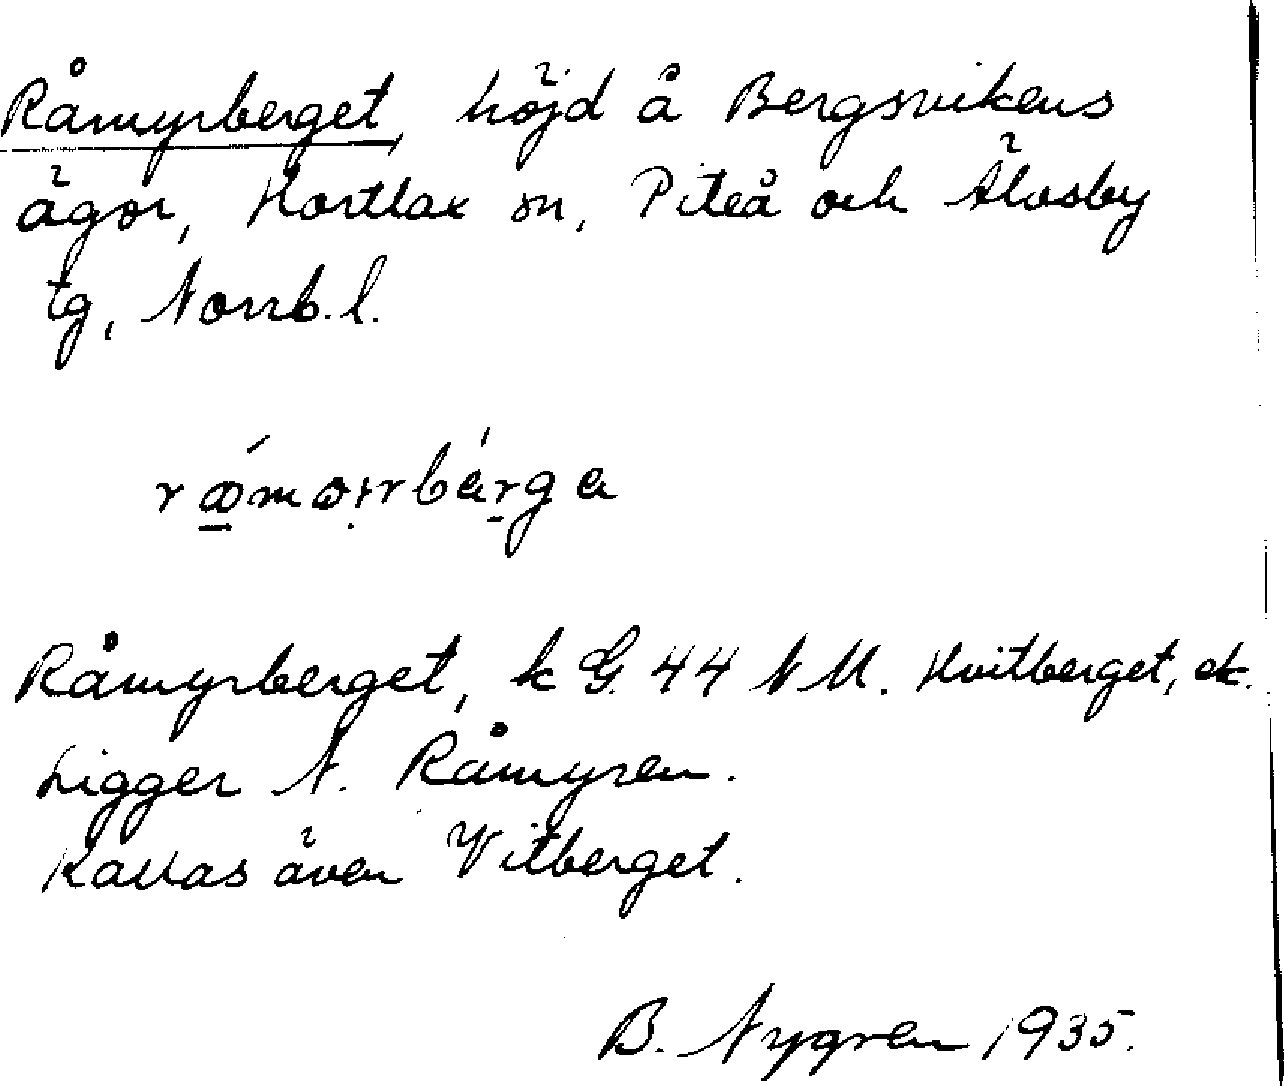 Råmyrberget, höjd å Bergsvikens
ägor, Hortlax sn, Piteå och Älvsby
tg, Norrb. l.
Råmyrberget, k G. 44 N M. Hvitberget, ek.
Ligger N. Råmyren.
Kallas även Vitberget.
B. Nygren 1935.